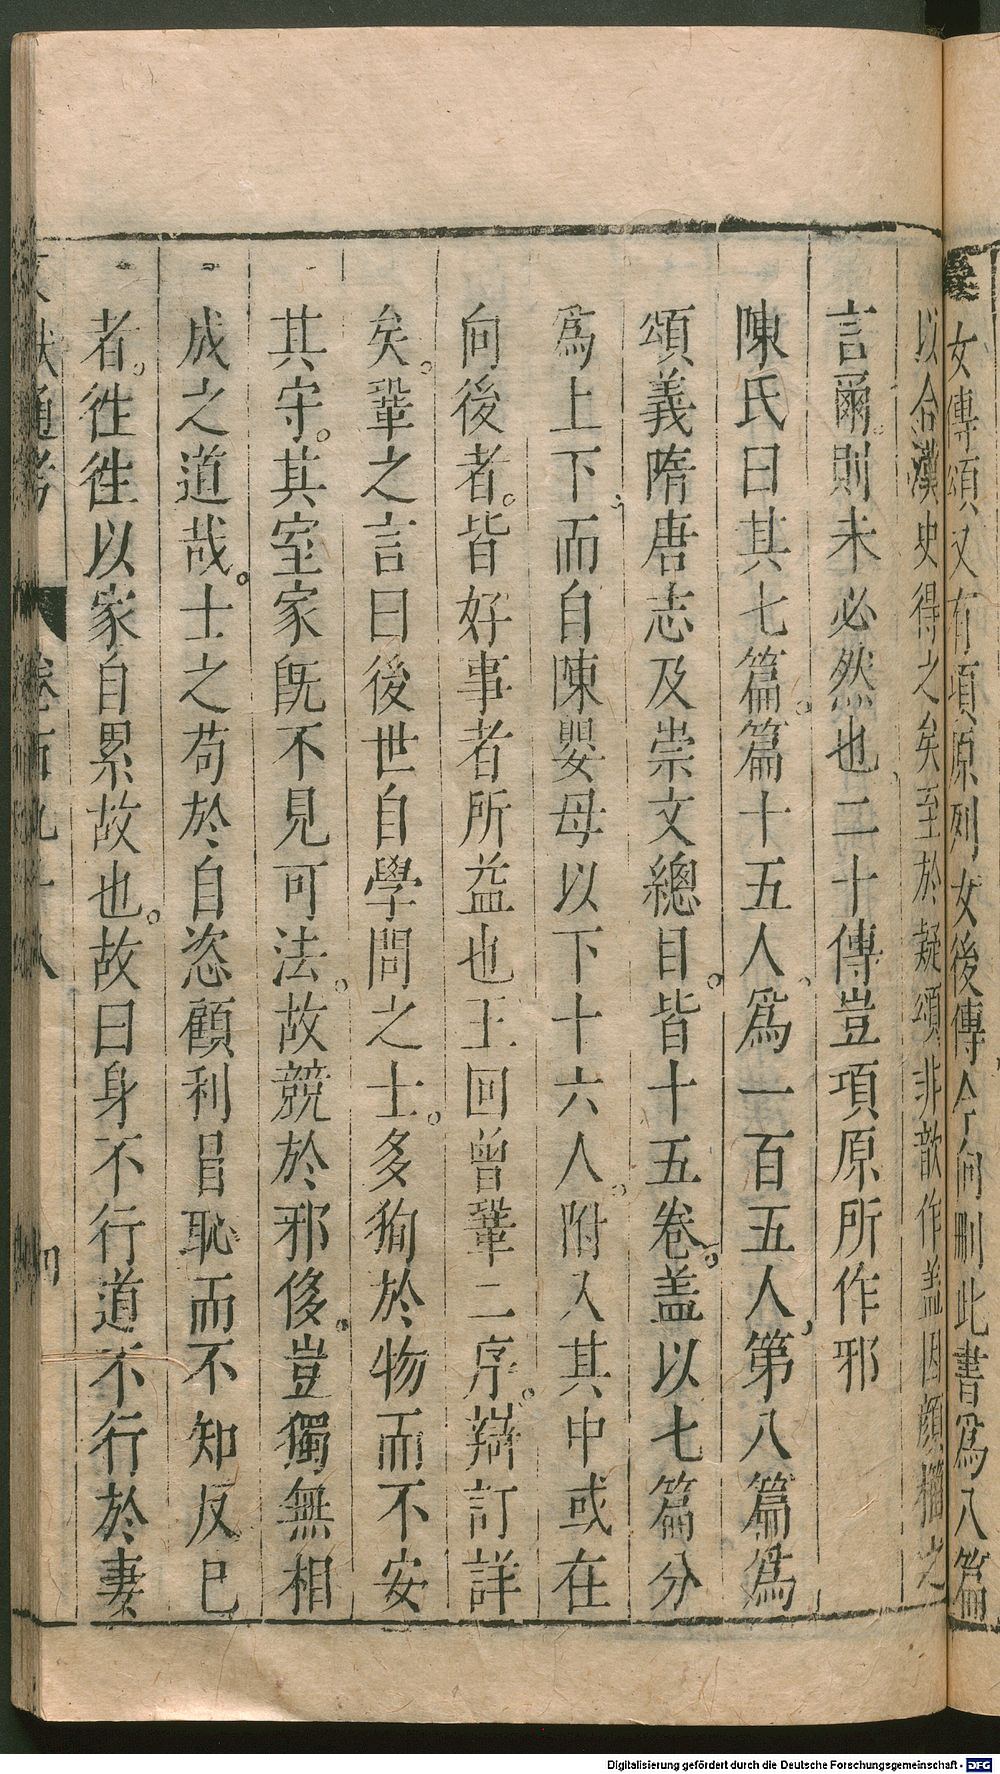 女傳頌又有項原列女後傳今向刪此書爲八篇
以合漢史得之矣至於疑頌非歆作盖因顏籀之
言爾。則未必然也、二十傳豈項原所作邪
陳氏曰其七篇。篇十五人、爲一百五人、第八篇爲
頌義隋唐志及崇文總目。皆十五卷。盖以七篇分
爲上下、而自陳嬰母以下十六人。附入其中或在
向後者。皆好事者所益也王回曾鞏二序。辯訂詳
矣。鞏之言曰後世自學問之士。多狥於物而不安
其守。其室家旣不見可法。故競於邪侈。豈獨無相
成之道哉。士之苟於自恣顧利冐恥而不知反已
者。徃徃以家自累故也。故曰身不行道不行於妻
文獻通考 卷百九十八 四
Digitalisierung gefördert durch die Deutsche Forschungsgemeinschaft - DFG